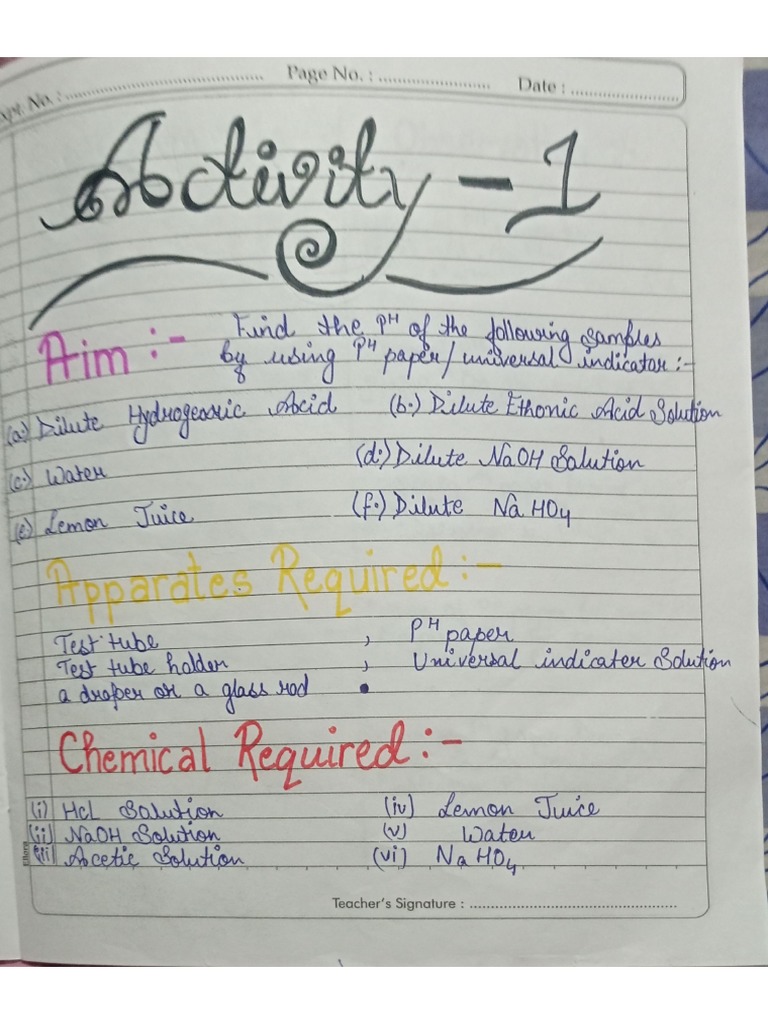 Expt. No. : Page No. : Date :
Activity - 1
Aim :- Find the PH of the following samples
by using PH paper/universal indicator :-
(a) Dilute Hydrogeoric Acid (b.) Dilute Ethonic Acid Solution
(c.) Water (d.) Dilute NaOH Solution
(e) Lemon Juice (f.) Dilute Na HO4
Apparates Required :-
Test tube , PH paper
Test tube holder , Universal indicater Solution
a droper or a glass rod
Chemical Required :-
(i) HCL Solution (iv) Lemon Juice
(ii) NaOH Solution (v) Water
(iii) Acetic Solution (vi) Na HO4
Teacher's Signature :